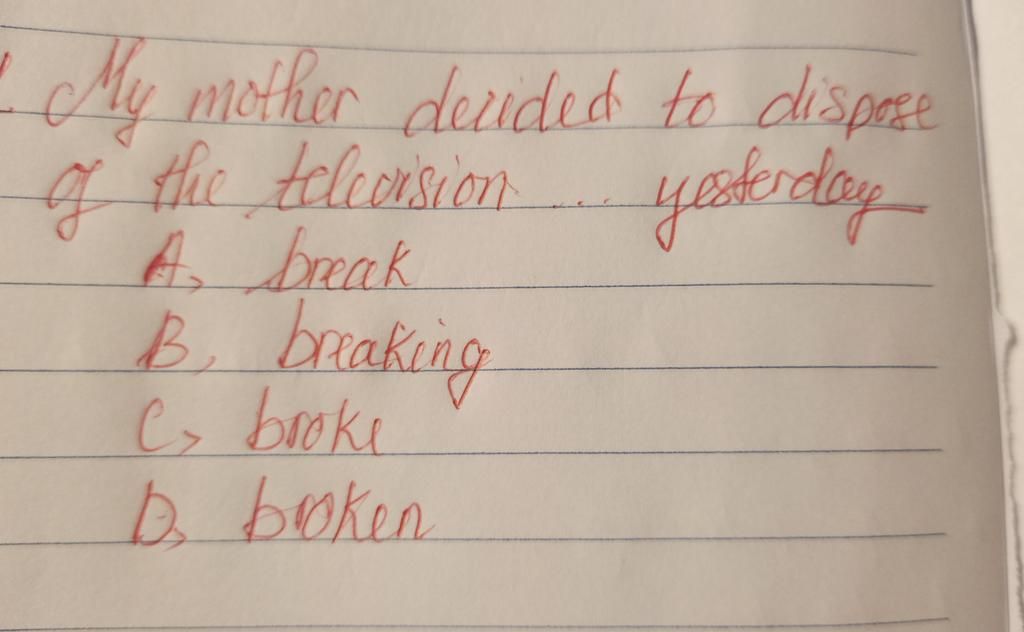 . My mother decided to dispose
of the television ... yesterday
A, break
B, breaking
C, broke
D, broken